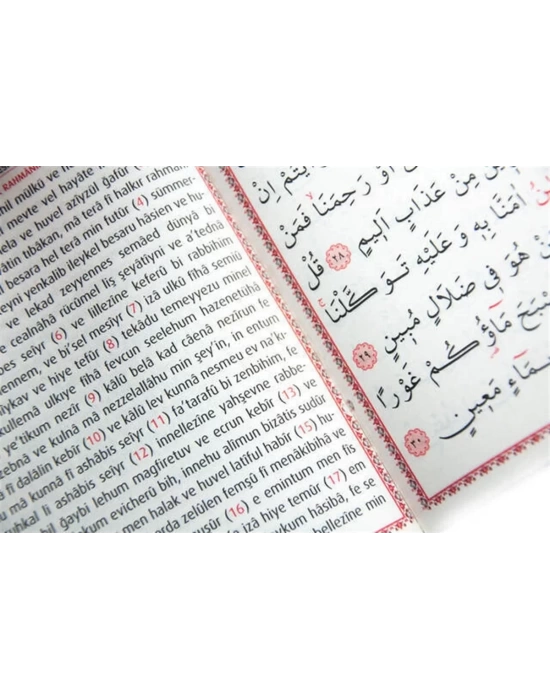 RAHMAN
hil mülkü ve
l mevte vel hayâte
ela ve huvel azîyzül gafûr
vâtin tıbâkan, mâ terâ fî halkır rahmân
l besara hel terâ min futûr (4) sümmer-
teyni yenkalib ileykel besaru hâsien ve hu-
ve lekad zeyyennes semâed dünyâ bi
ve cealnâhâ rücûmel liş şeyâtîyni ve a'tednâ
bes seîyr (6) ve lillezîne keferû bi rabbihim
ennem, ve bi'sel mesîyr (7) izâ ulkû fîhâ semiû
hîykav ve hiye tefûr (8) tekâdu temeyyezu minel
küllemâ ulkıye fîhâ fevcun seelehum hazenetühâ
e'tikum nezîr (9) kâlû belâ kad câenâ nezîrun fe
zebnâ ve kulnâ mâ nezzelallâhu min şey'in, in entum
â fî dalâlin kebîr (10) ve kâlû lev kunnâ nesmeu ev na'k-
u mâ kunnâ fî ashâbis seîyr (11) fa'tarafû bi zenbihim, fe
uhkal li ashâbis seîyr (12) innellezîne yahşevne rabbe-
bil ğaybi lehum magfiretuv ve ecrun kebîr (13) ve
kum evicherû bih, innehu alîmun bizâtis sudûr
men halak ve huvel latîful habîr (15) hu-
arda zelûlen femşû fî menâkibihâ ve
nuşûr (16) e emintum men fis
izâ hiye temûr (17) em
aykum hâsibâ, fe se
bellezîne min
اَوْ رَحِمَنَا فَمَنْ
مِنْ عَذَابٍ اَلِيمٍ ٢٨ قُلْ
اٰمَنَّا بِهِ وَ عَلَيْهِ تَوَكَّلْنَا
هُوَ فِي ضَلَالٍ مُبِينٍ ٢٩
مَاؤُكُمْ غَوْرًا
مَعِينٍ ٣٠